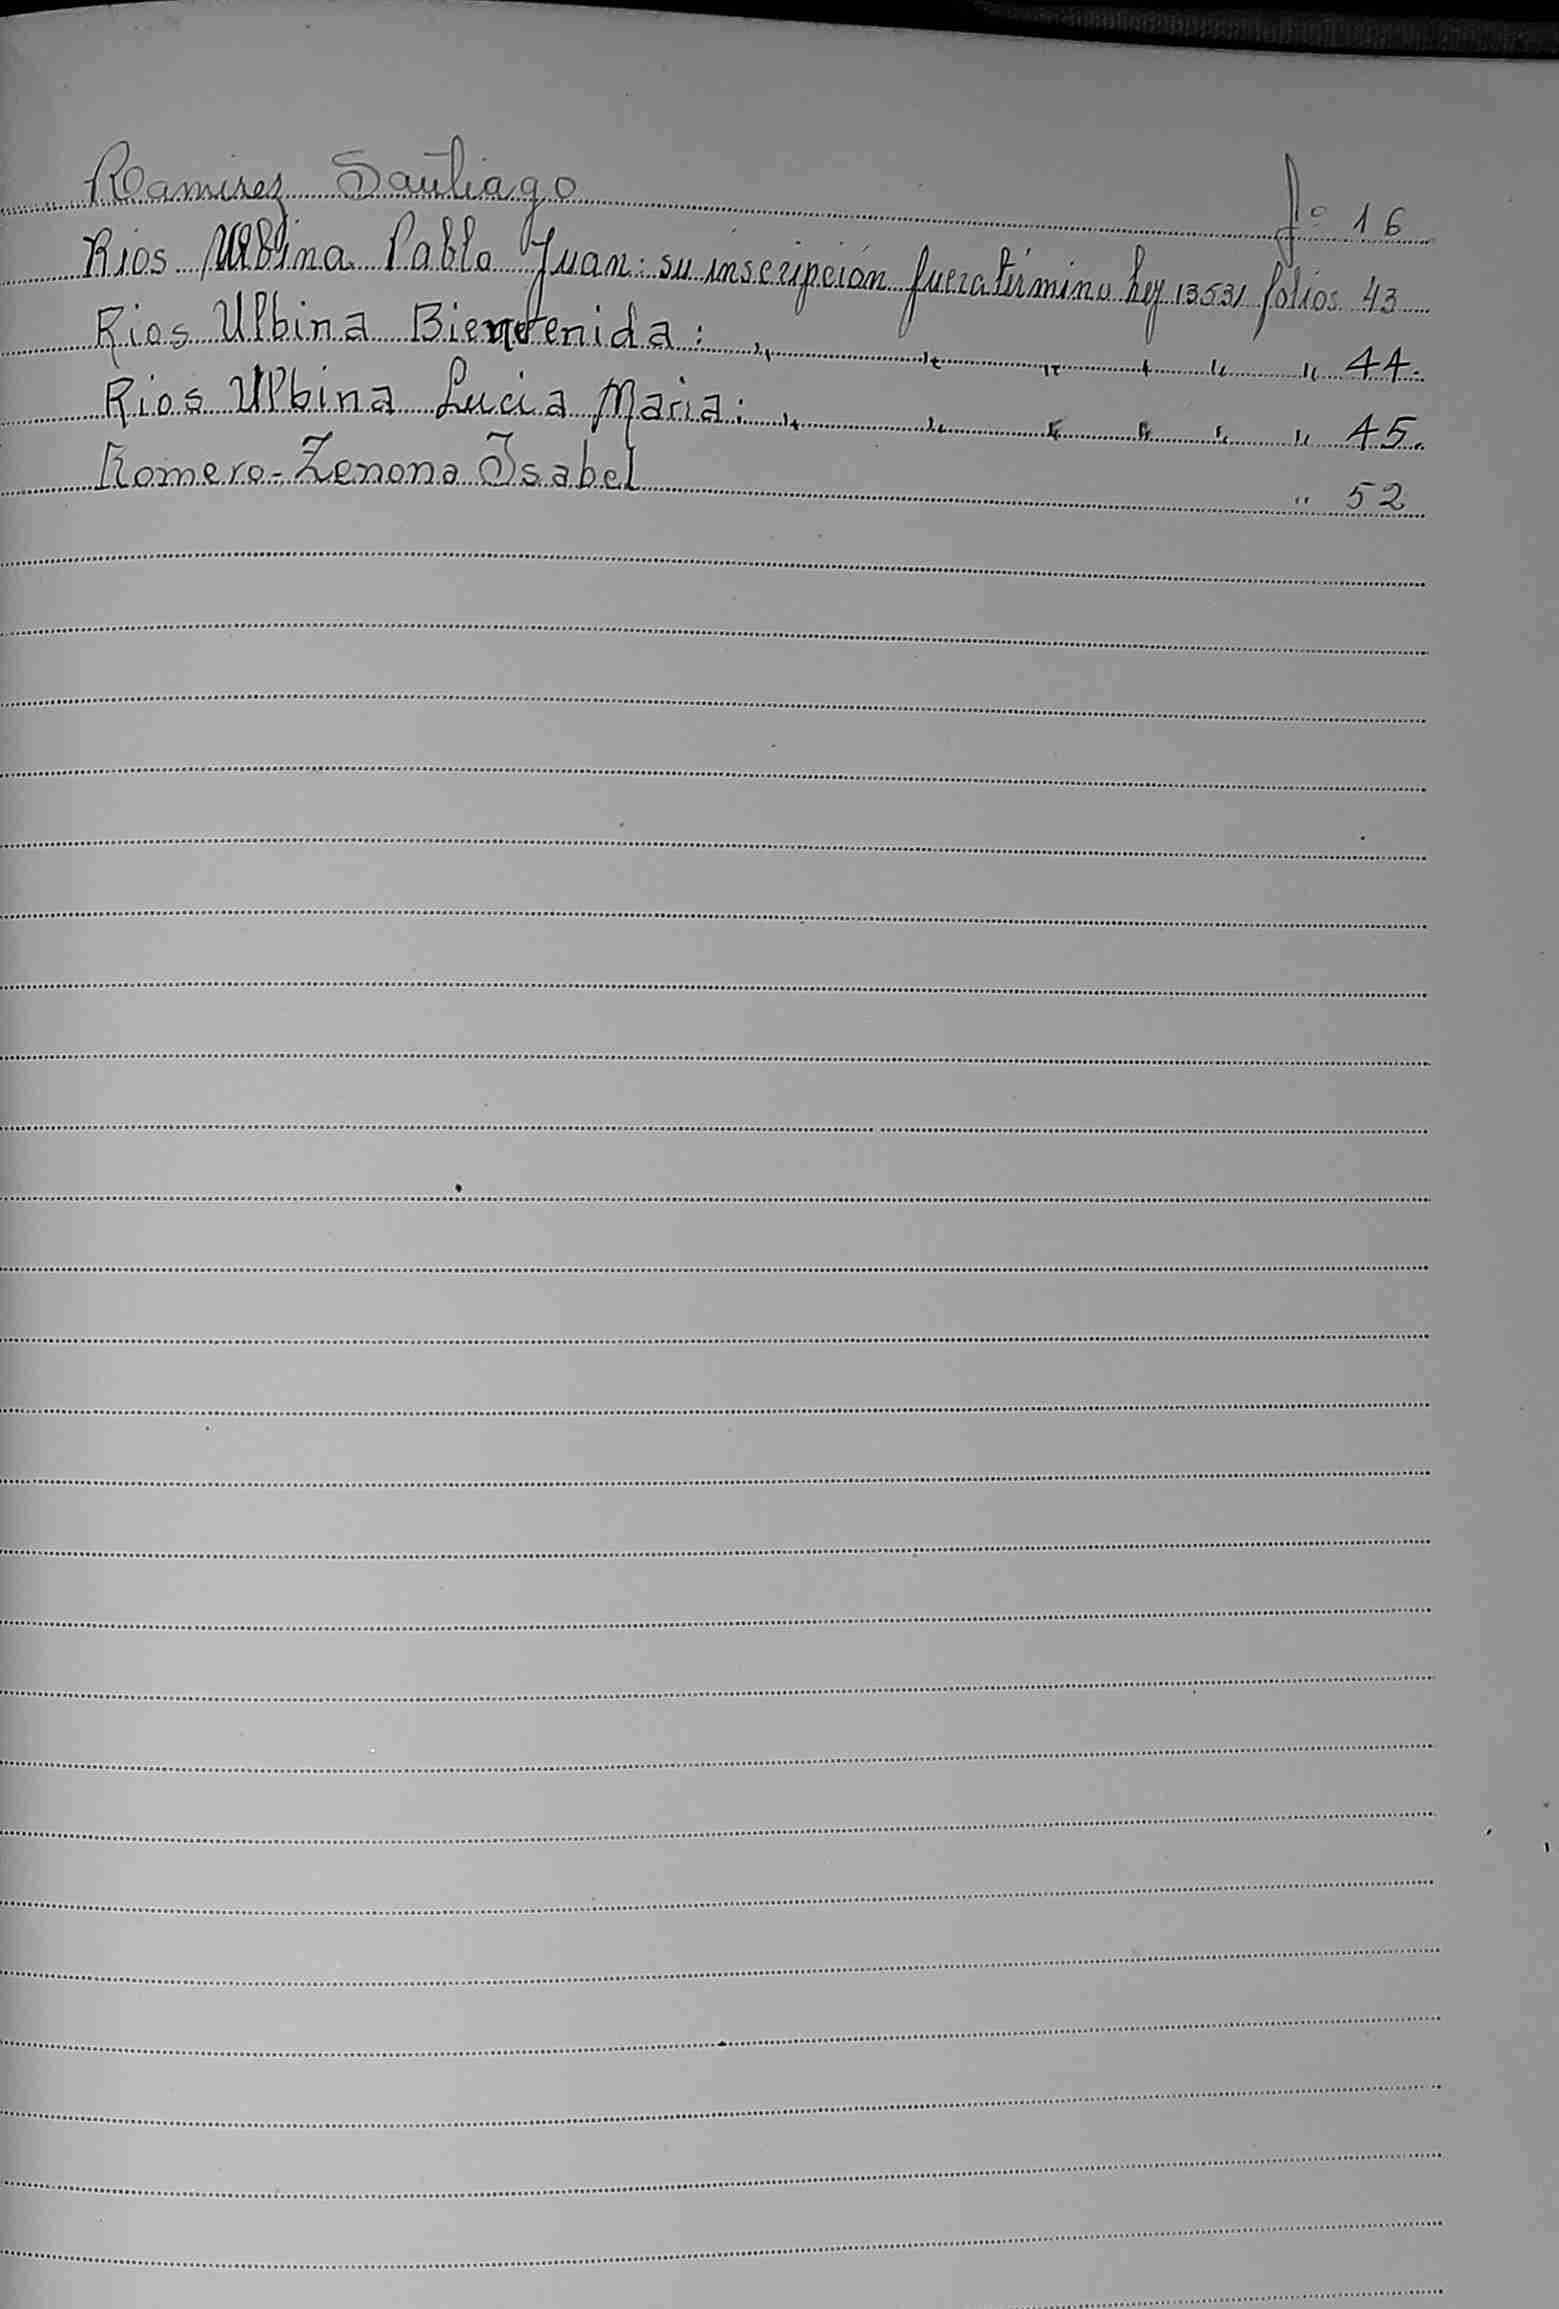 Ramirez Santiago fº 16
Rios Ulbina Pablo Juan: su inscripción fuera término ley 13531 folios 43
Rios Ulbina Bienvenida: " " " " " " 44.
Rios Ulbina Lucia Maria: " " " " " " 45.
Romero - Zenona Isabel " 52